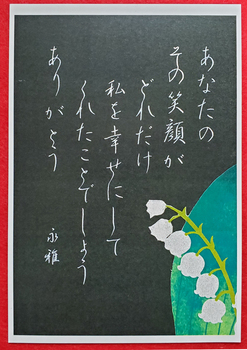 あなたの
その笑顔が
どれだけ
私を幸せにして
くれたことでしょう
ありがとう
永雅